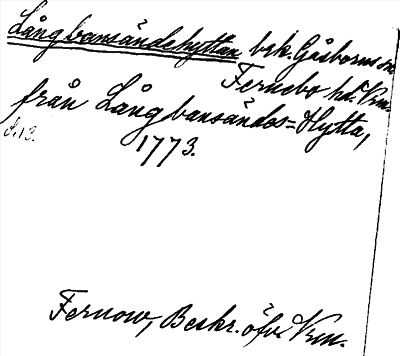 Långbansändehyttan brk. Gåsborns sn
Fernebo hd. Vrm.
från Långbansändes=Hytta,
s. 13.
1773.
Fernow, Beskr. öfv. Vrm.